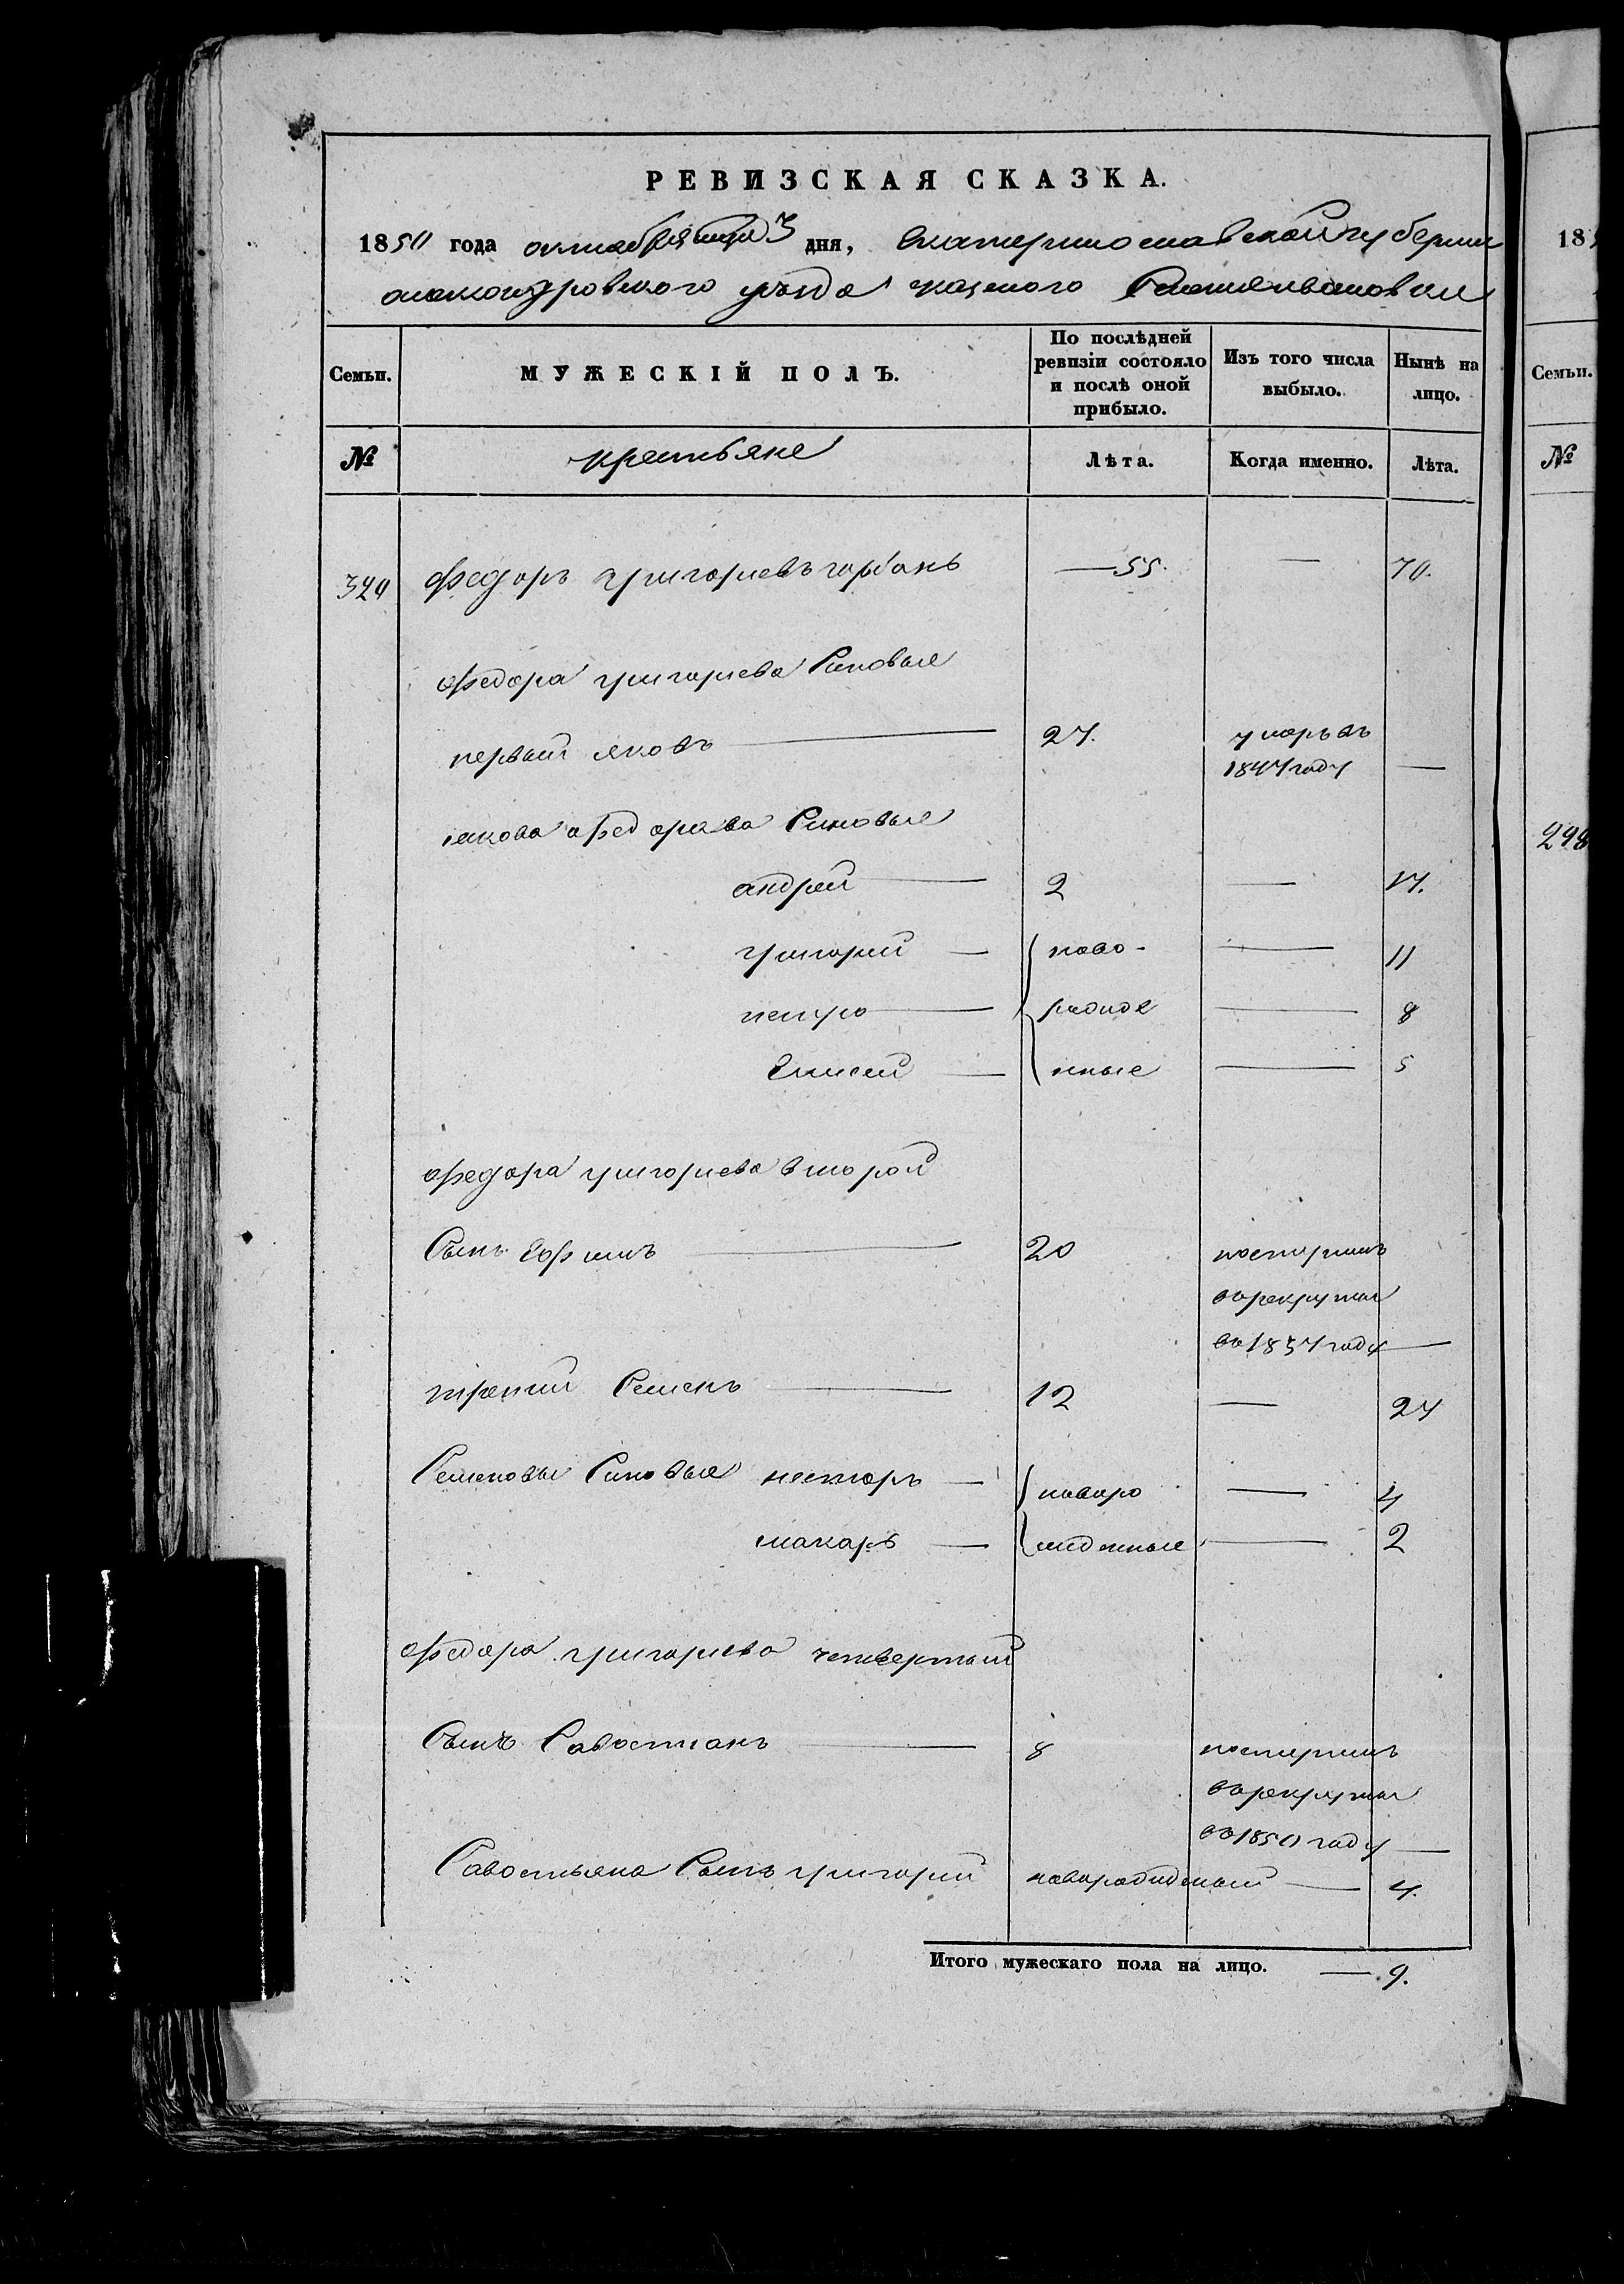 РЕВИЗСКАЯ СКАЗКА.
1850 года октабря 3 дня, Екатеринославской губернии
уѣзда казеного
Семьи. МУЖЕСКІЙ ПОЛЪ. По послѣдней ревизіи состояло и послѣ оной прибыло. Изъ того числа выбыло. Нынѣ на лицо.
№ крестьяне Лѣта. Когда именно. Лѣта.
320 Федоръ григориевъ горбань — 55. — 70.
Федора григориева Синовые
первый яковъ — 27. умеръ въ
1847 году —
якова Федорова Синовые
андрей — 2 — 17.
григорий — ново- — 11
петро — рожде — 8
Елисей — нные — 5
Федора григориева второй
Сынъ Ефимъ — 20 поступилъ
въ рекруты
въ 1837 году —
третий Семенъ — 12 — 27
Семеновы Синовые несторъ — новоро — 4
макаръ — жденные — 2
Федора григориева четвертый
Сынъ Савостианъ — 8 поступилъ
въ рекруты
въ 1850 году —
Савостьяна Сынъ григорий новорожденый — 4.
Итого мужескаго пола на лицо. — 9.
18
Семьи.
№
298